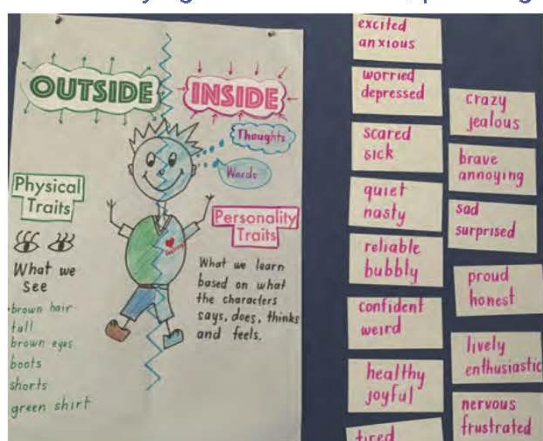 OUTSIDE
INSIDE
Thoughts
Words
Physical
Traits
What we
See
brown hair
tall
brown eyes
boots
shorts
green shirt
Personality
Traits
What we learn
based on what
the characters
says, does, thinks
and feels.
excited
anxious
worried
depressed
scared
sick
quiet
nasty
reliable
bubbly
confident
weird
healthy
joyful
tired
crazy
jealous
brave
annoying
sad
surprised
proud
honest
lively
enthusiastic
nervous
frustrated